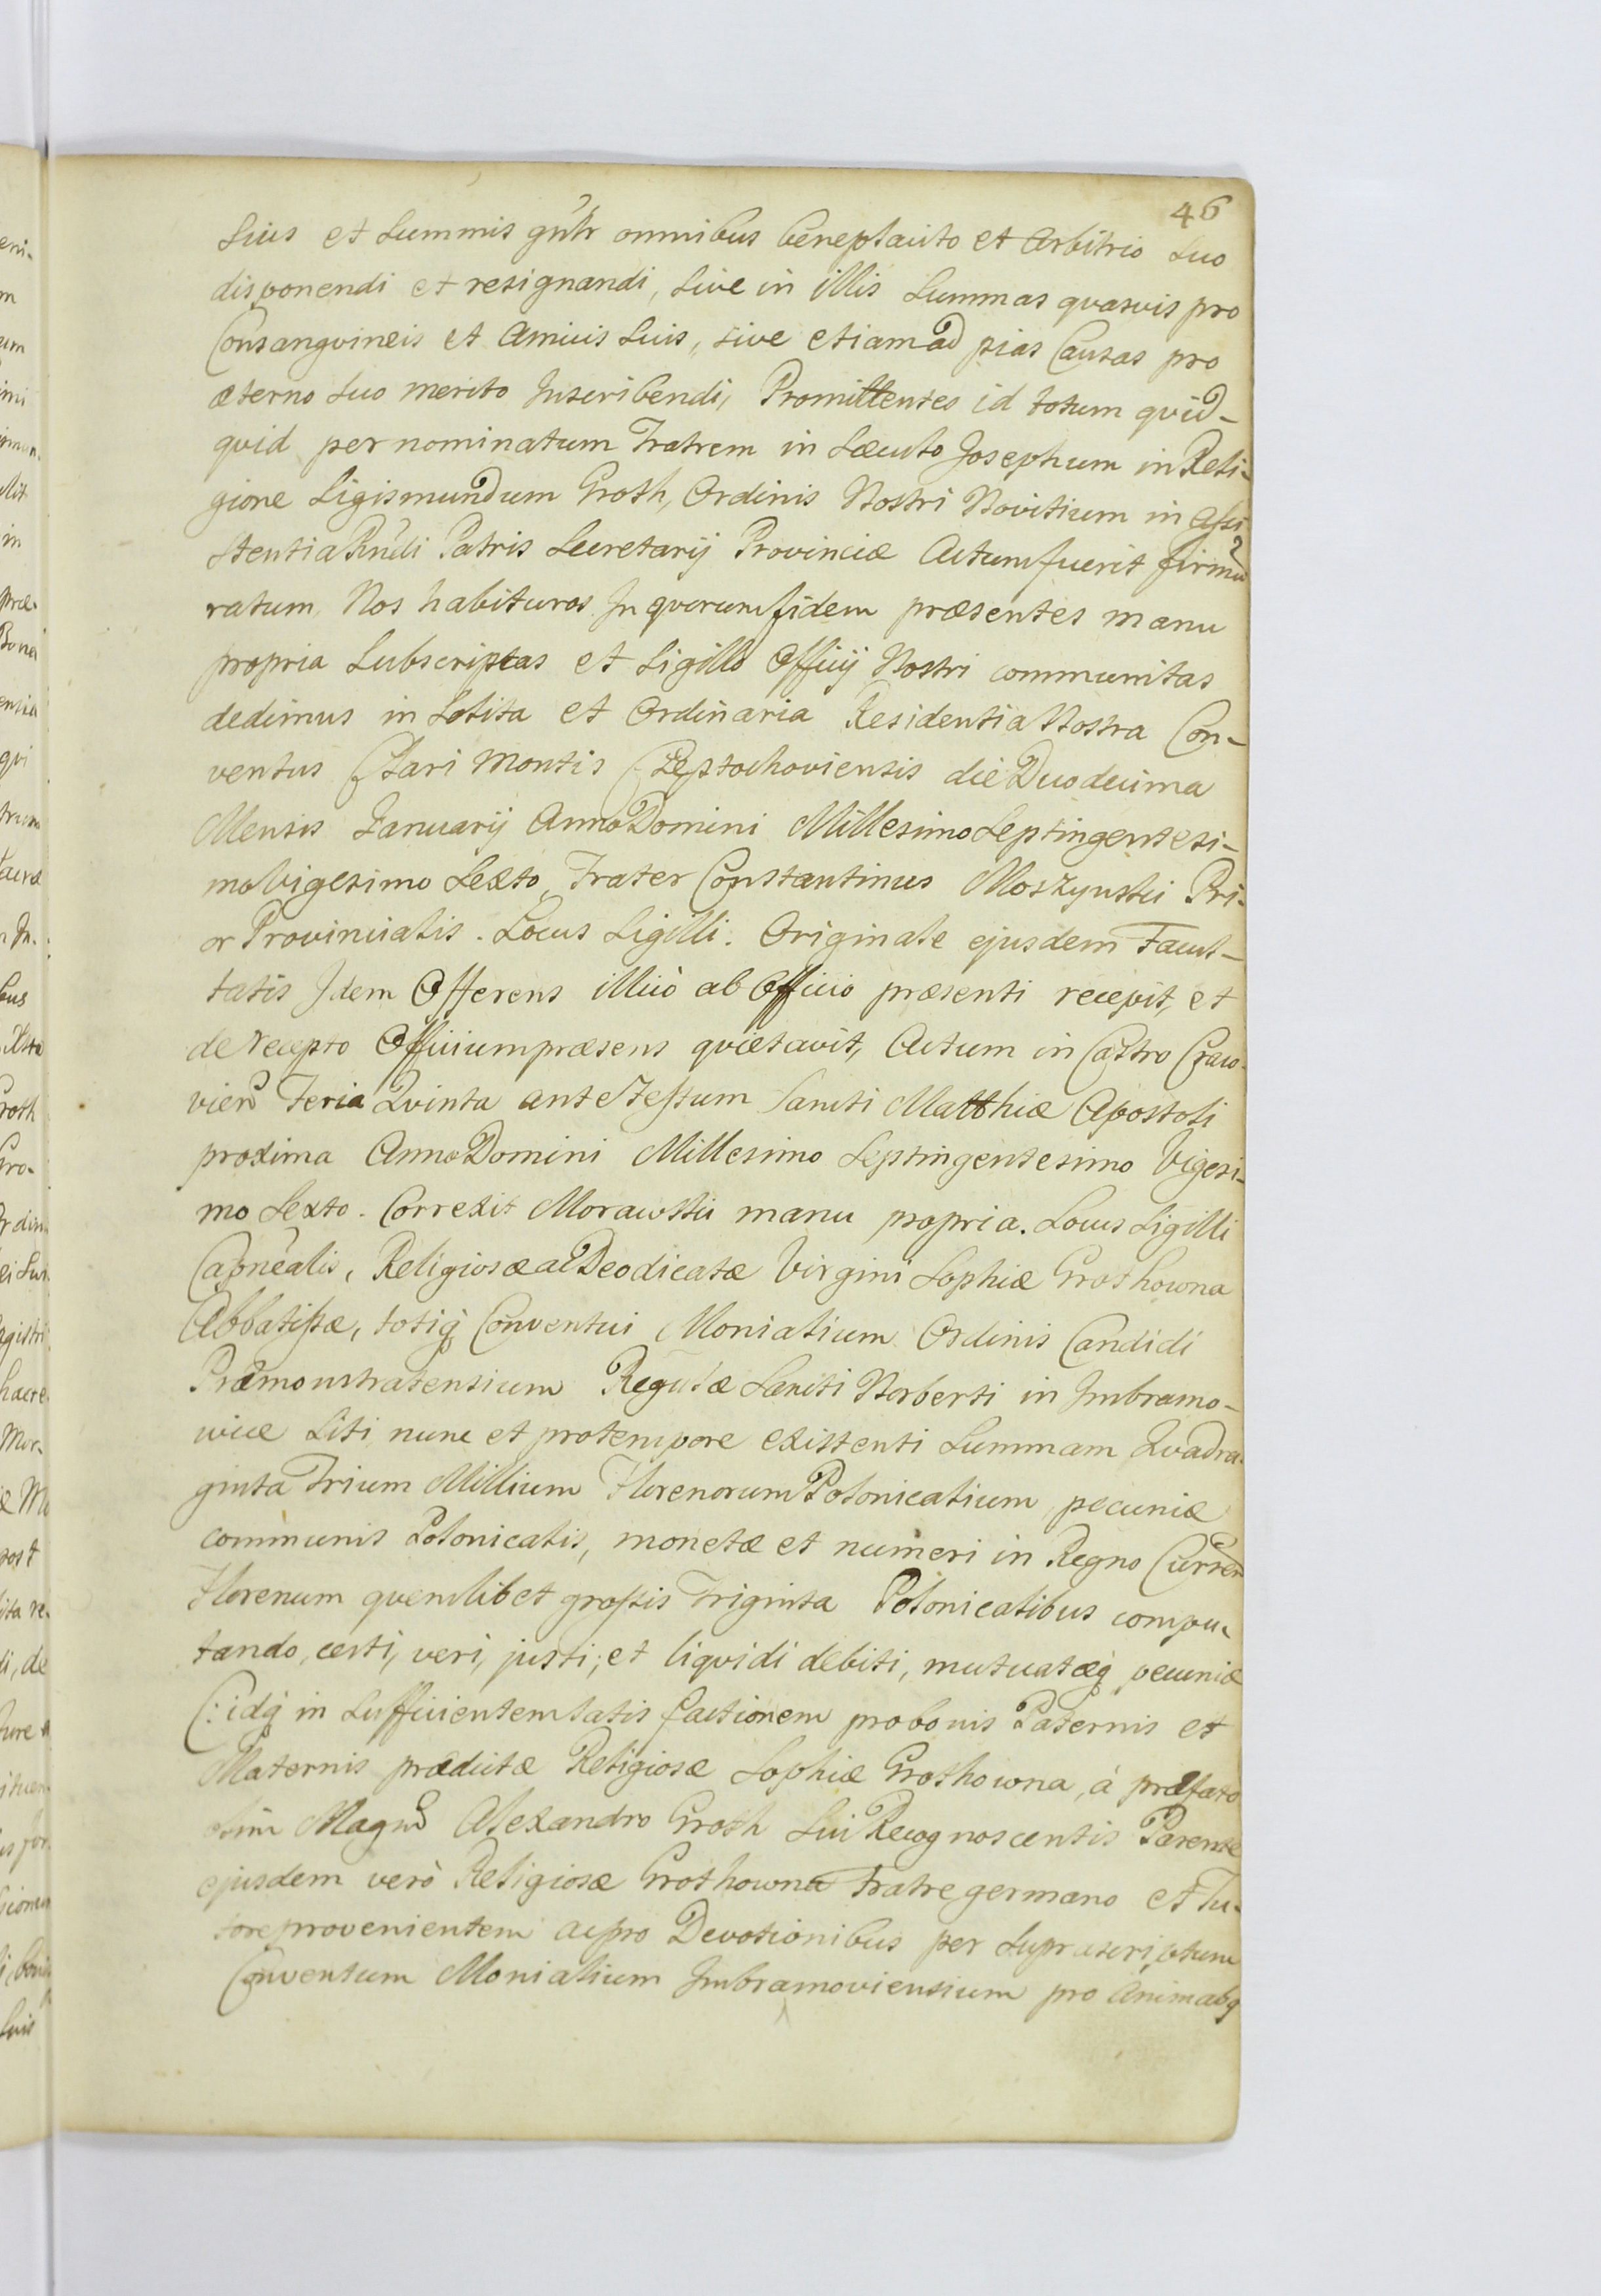 46
Suis et Summis gn̄lr omnibus beneplacito et Arbitrio Suo
disponendi et resignandi, Sive in illis Summas qvasvis pro
Consangvineis et Amicis Suis, sive etiam ad pias Causas pro
æterno Suo merito Inscribendi, Promittentes id totum qvid-
qvid per nominatum Fratrem in Sæculo Josephum in Reli-
gione Sigismundum Groth, Ordinis Nostri Novitium in Assi-
stentia Rn̄di Patris Secretarij Provinciæ Actum fuerit firmū
ratum Nos habituros In qvorum fidem præsentes manu
propria Subscriptas et Sigillo Officij Nostri communitas
dedimus in Solita et Ordinaria Residentia Nostra Con-
ventus Clari Montis Częstochoviensis die Duodecima
Mensis Januarij Anno Domini Millesimo Septingentesi-
mo Vigesimo Sexto, Frater Constantinus Moszynski Pri-
or Provincialis. Locus Sigilli. Originale ejusdem Facul-
tatis Idem Offerens illicò ab Officio præsenti recepit, et
de recepto Officium præsens qvietavit, Actum in Castro Craco-
vien Feria Qvinta ante Festum Sancti Matthiæ Apostoli
proxima Anno Domini Millesimo Septingentesimo Vigesi-
mo Sexto. Correxit Morawski manu propria. Locus Sigilli
Capnēalis, Religiosæ ac Deo dicatæ Virgini Sophiæ Grothowna
Abbatissæ, totiq; Conventui Monialium Ordinis Candidi
Præmonstratensium Regulæ Sancti Norberti in Imbramo-
wice Siti nunc et pro tempore existenti Summam Qvadra-
ginta Trium Millium Florenorum Polonicalium pecuniæ
communis Polonicalis, monetæ et numeri in Regno Curren
Florenum qvemlibet grossis Triginta Polonicalibus compu-
tando, certi, veri, justi, et liqvidi debiti, mutuatæq; pecuniæ
(: idq; in Sufficientem Satisfactionem pro bonis Paternis et
Maternis prædictæ Religiosæ Sophiæ Grothowna, à præfato
olim Magnō Alexandro Groth Sui Recognoscentis Parente
ejusdem verò Religiosæ Grothowna Fratre germano et Tu-
tore provenientem ac pro Devotionibus per Suprascriptum
Conventum Monialium Imbramoviensium pro Animabq;